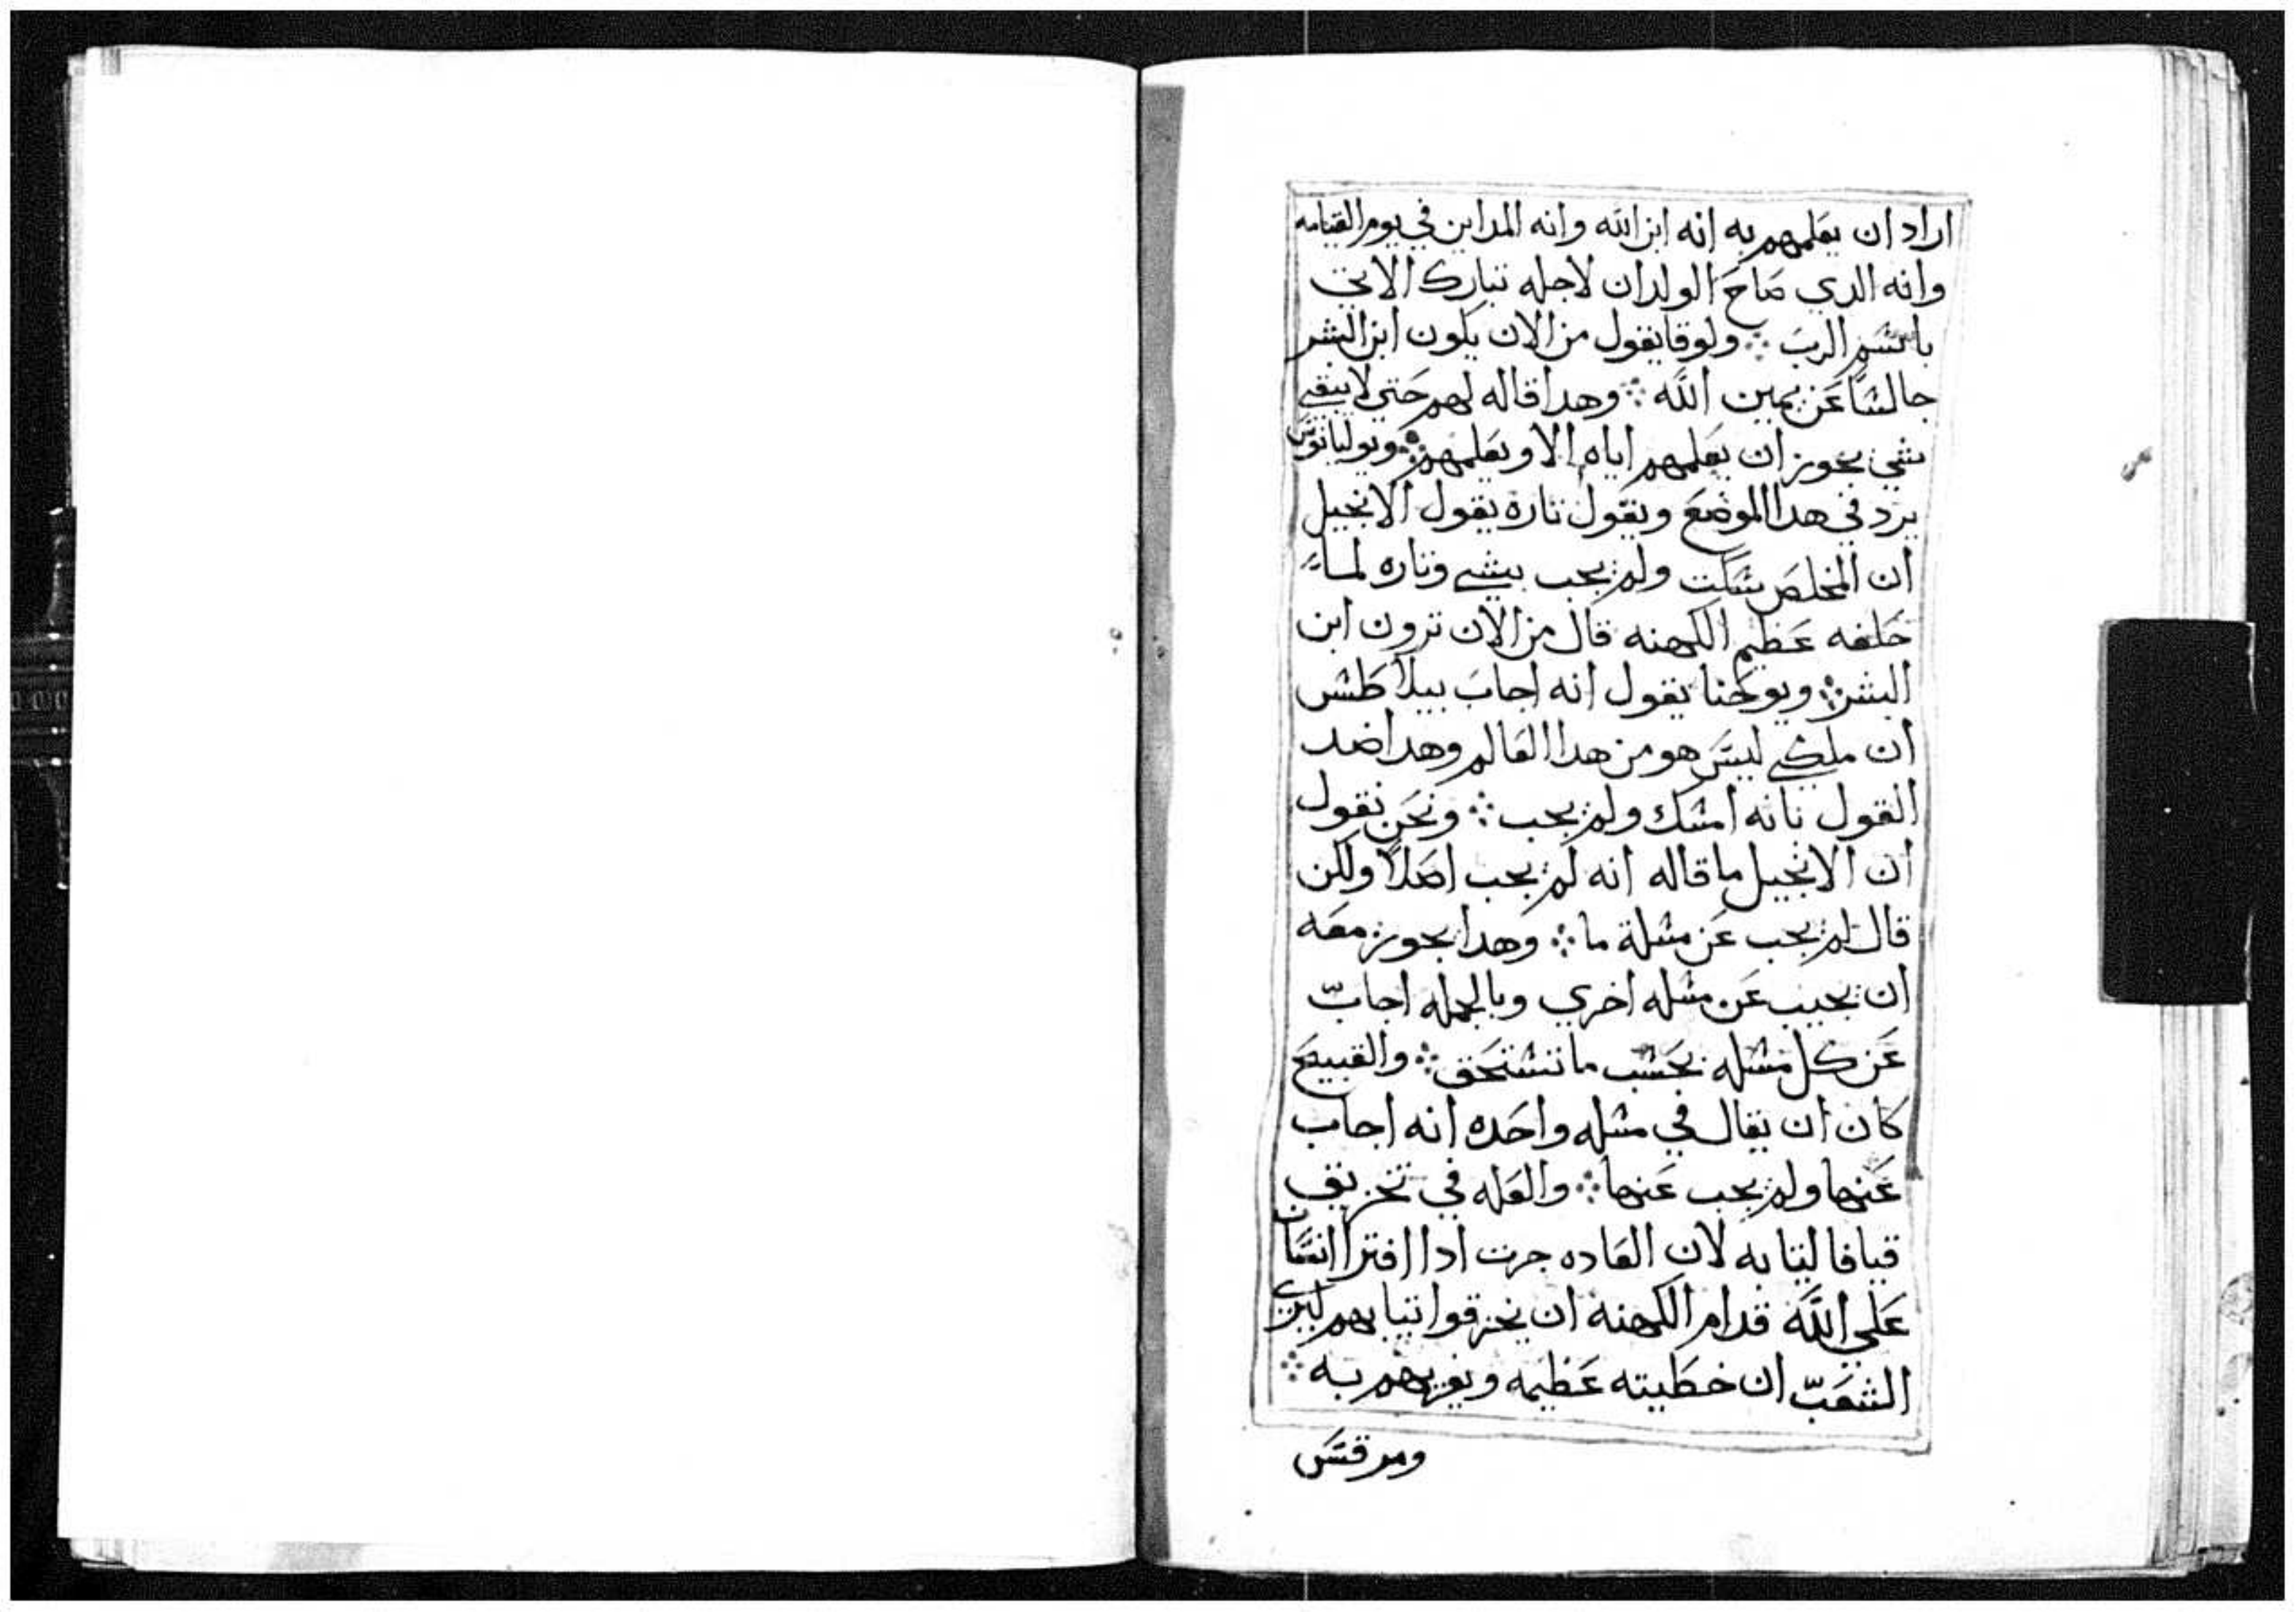 اراد ان يعلمهم به انه ابن الله وانه المداين في يوم القيامه
وانه الدي صاح الولدان لاجله تبارك الاتي
باسم الرب ⁘ ولوقا يقول من الان يكون ابن البشر
جالسًا عن يمين الله ⁘ وهدا قاله لهم حتي لا يبقي
شي يجوز ان يعلمهم اياه الا ويعلمهم ⁘ ويوليانوس
يرد في هدا الموضع ويقول تارة يقول الانجيل
ان المخلص سكت ولم يجب بشي وتاره لما
حلفه عظيم الكهنه قال من الان ترون ابن
البشر ⁘ ويوحنا يقول انه اجاب بيلاطس
ان ملكي ليس هو من هدا العالم وهدا ضد
القول بانه امسك ولم يجب ⁘ ونحن نقول
ان الانجيل ما قاله انه لم يجب اصلًا ولكن
قال لم يجب عن مسلة ما ⁘ وهدا يجوز معه
ان يجيب عن مسله اخري وبالجمله اجاب
عن كل مسله بحسب ما تستحق ⁘ والقبيح
كان ان يقال في مسله واحده انه اجاب
عنها ولم يجب عنها ⁘ والعله في تخزيق
قيافا لتيابه لان العاده جرت ادا افترا انسان
علي الله قدام الكهنة ان يخزقوا تيابهم ليري
الشعب ان خطيته عظيمه ويفزعهم به ⁘
ومرقس